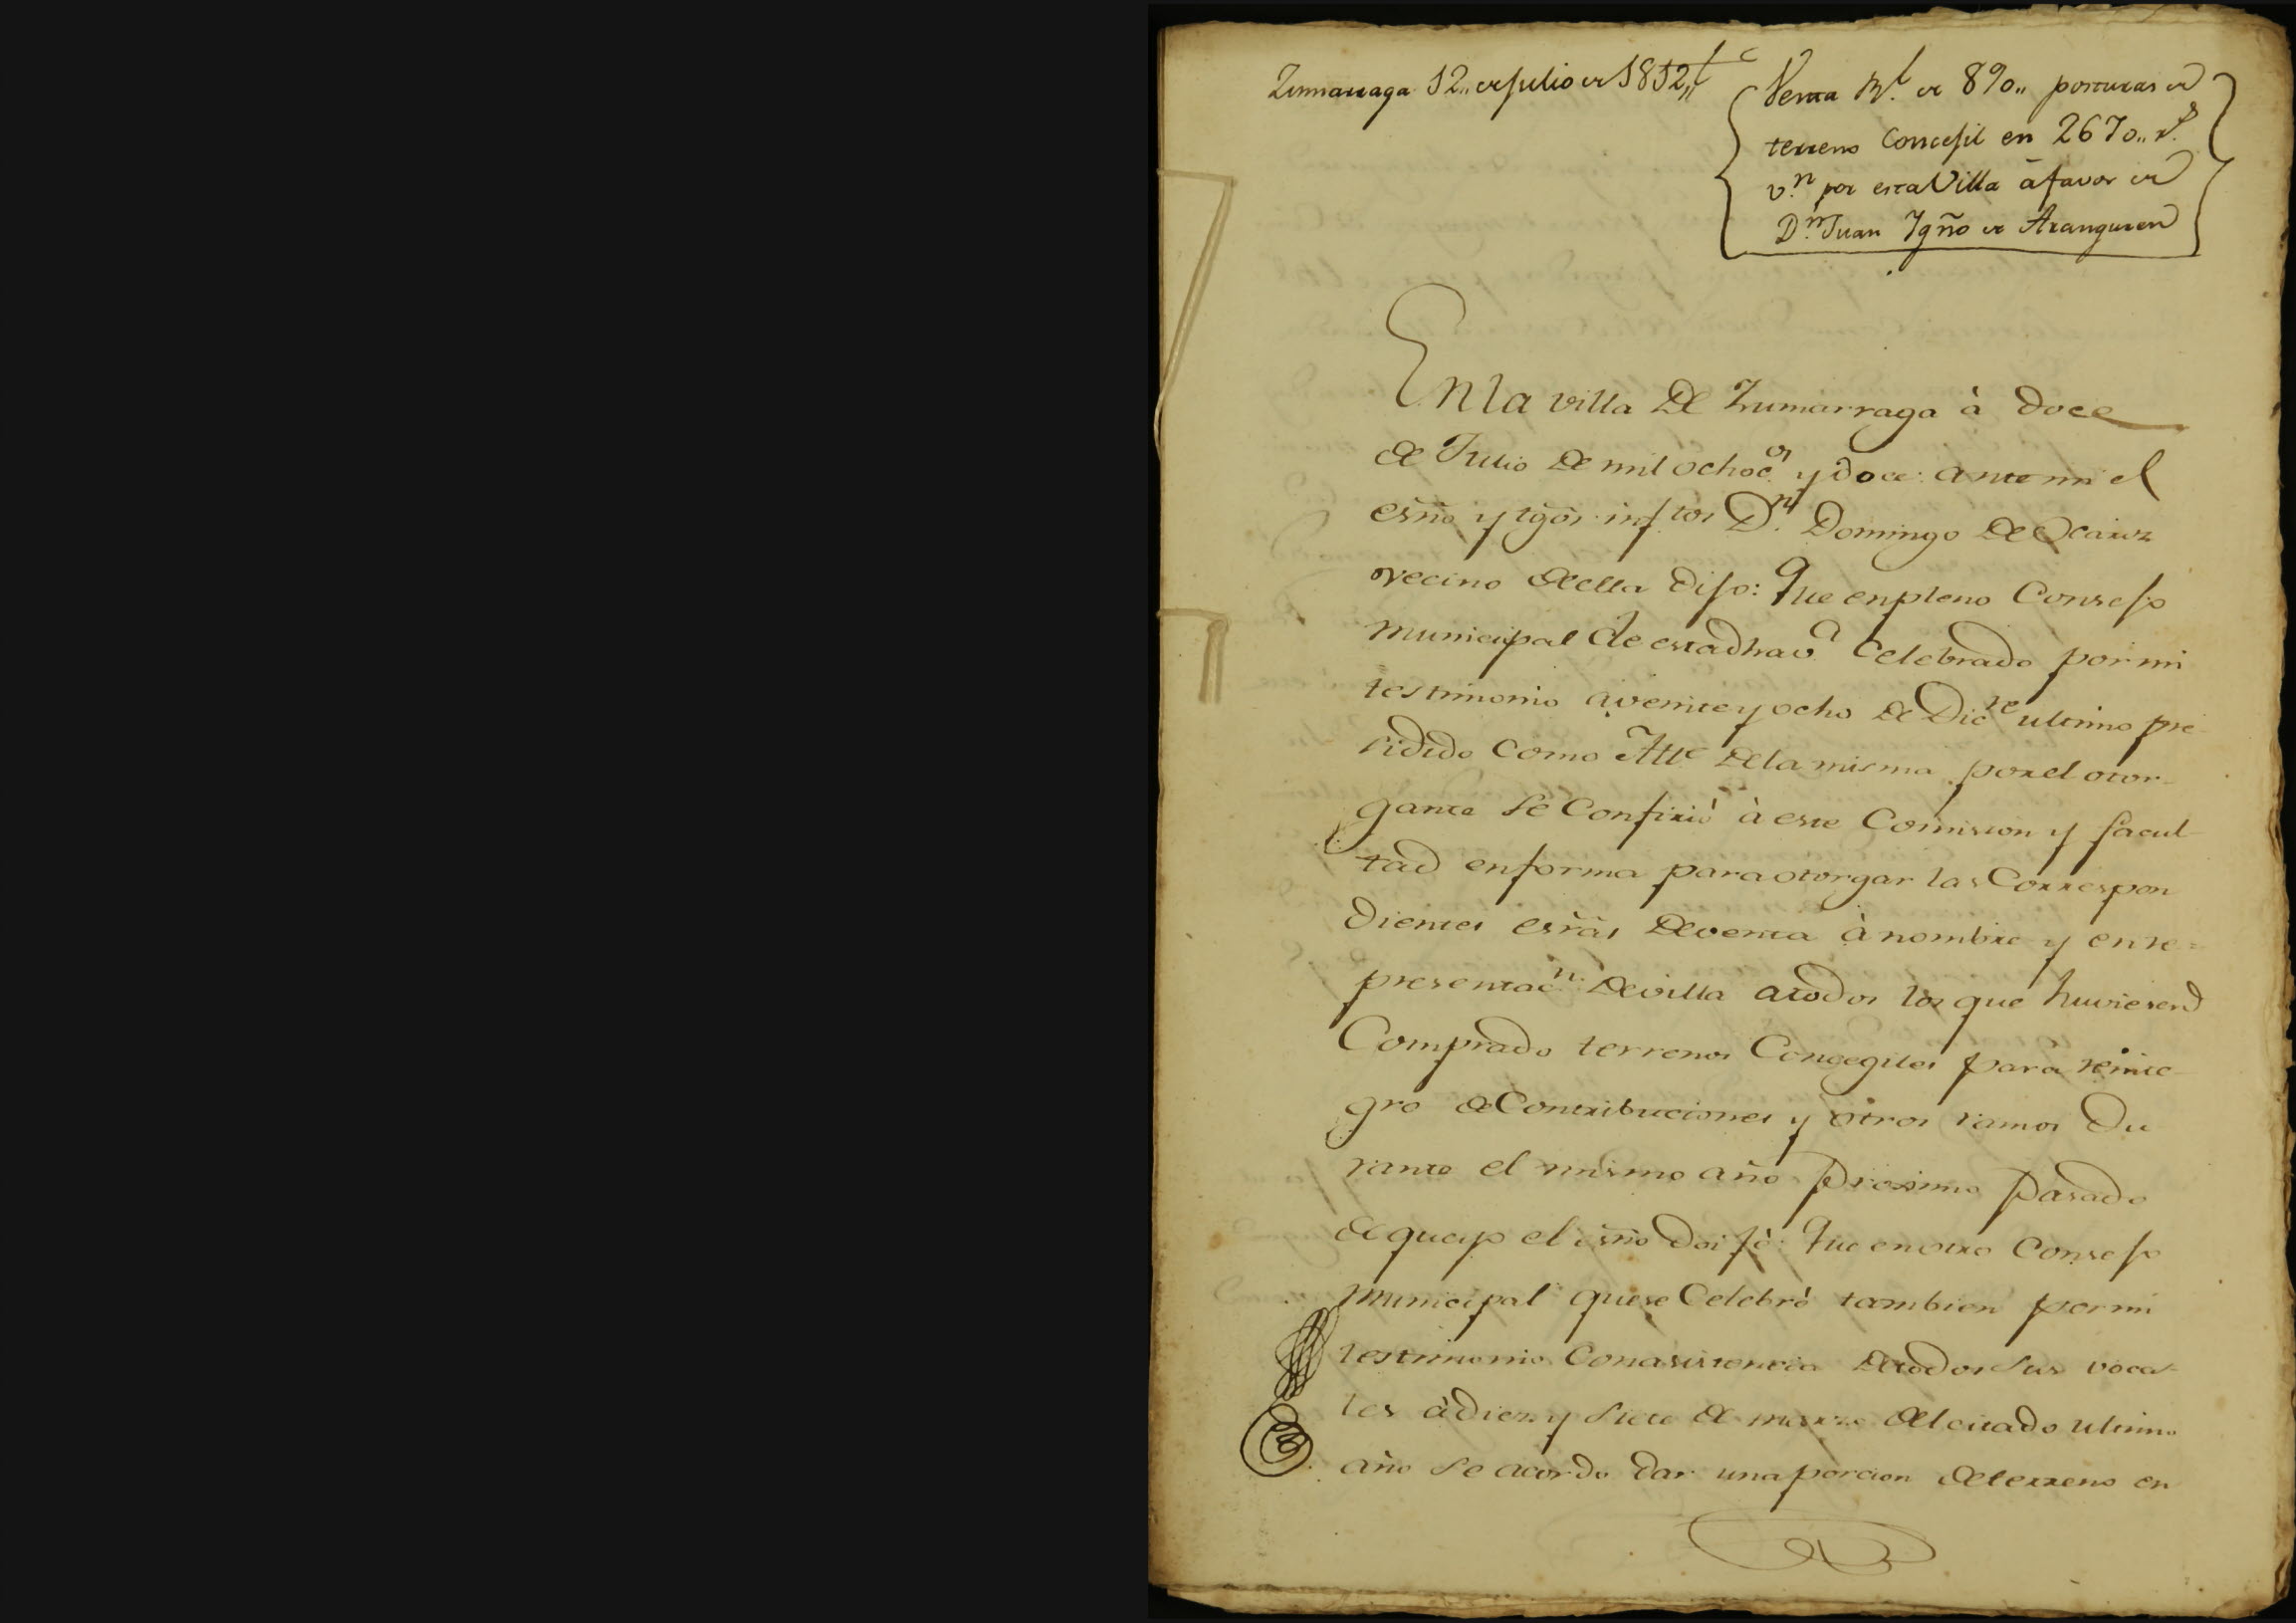 Zumarraga 12,, de Julio de 1812,,
Venta Rl. de 890,, posturas de
terreno Concejil en 2670,, rs.
vn. por esta Villa à favor de
Dn. Juan Ygño de Aranguren
En la villa de Zumarraga à doce
de Julio de mil ochocos. y doce: ante mi el
esño y tgos. infrtos Dn. Domingo de Ocariz
vecino de ella dijo: Que en pleno Consejo
municipal de esta dha va. Celebrado por mi
testimonio a veinte y ocho de Dicre. ultimo pre-
sidido como Alle. de la misma por el otor-
gante se Confirió à este Comision y facul-
tad en forma para otorgar las Correspon
dientes esras de venta à nombre y en re=
presentacn. de villa a todos los que huvieren
Comprado terrenos Concegiles para reinte-
gro de Contribuciones y otros ramos Du
rante el mismo año proximo pasado
de que yo el esño doi fè: Que en otro Consejo
municipal que se Celebrò tambien por mi
testimonio Con asistencia de todos sus voca-
les à diez y siete de marzo del citado ultimo
año se acordo dar una porcion de terreno en